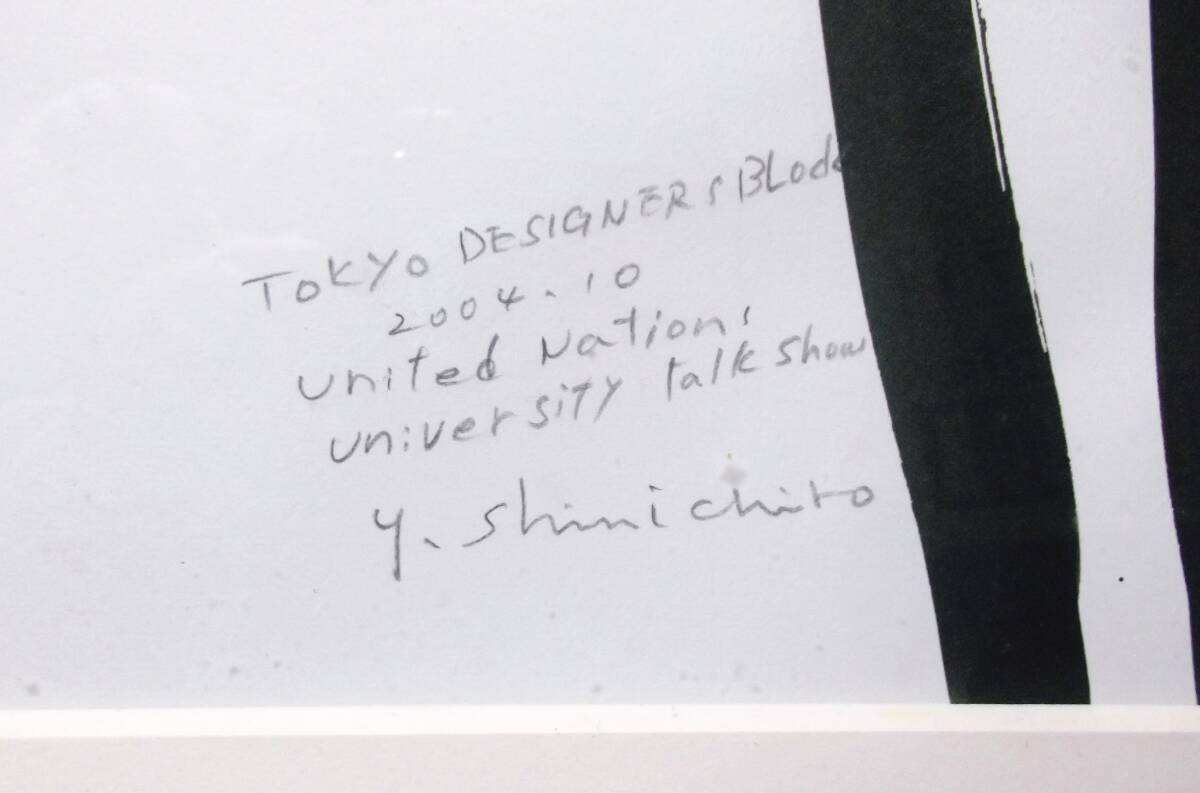 TOKYO DESIGNERS BLock
2004.10
United Nations
University talk show
Y. Shinichiro